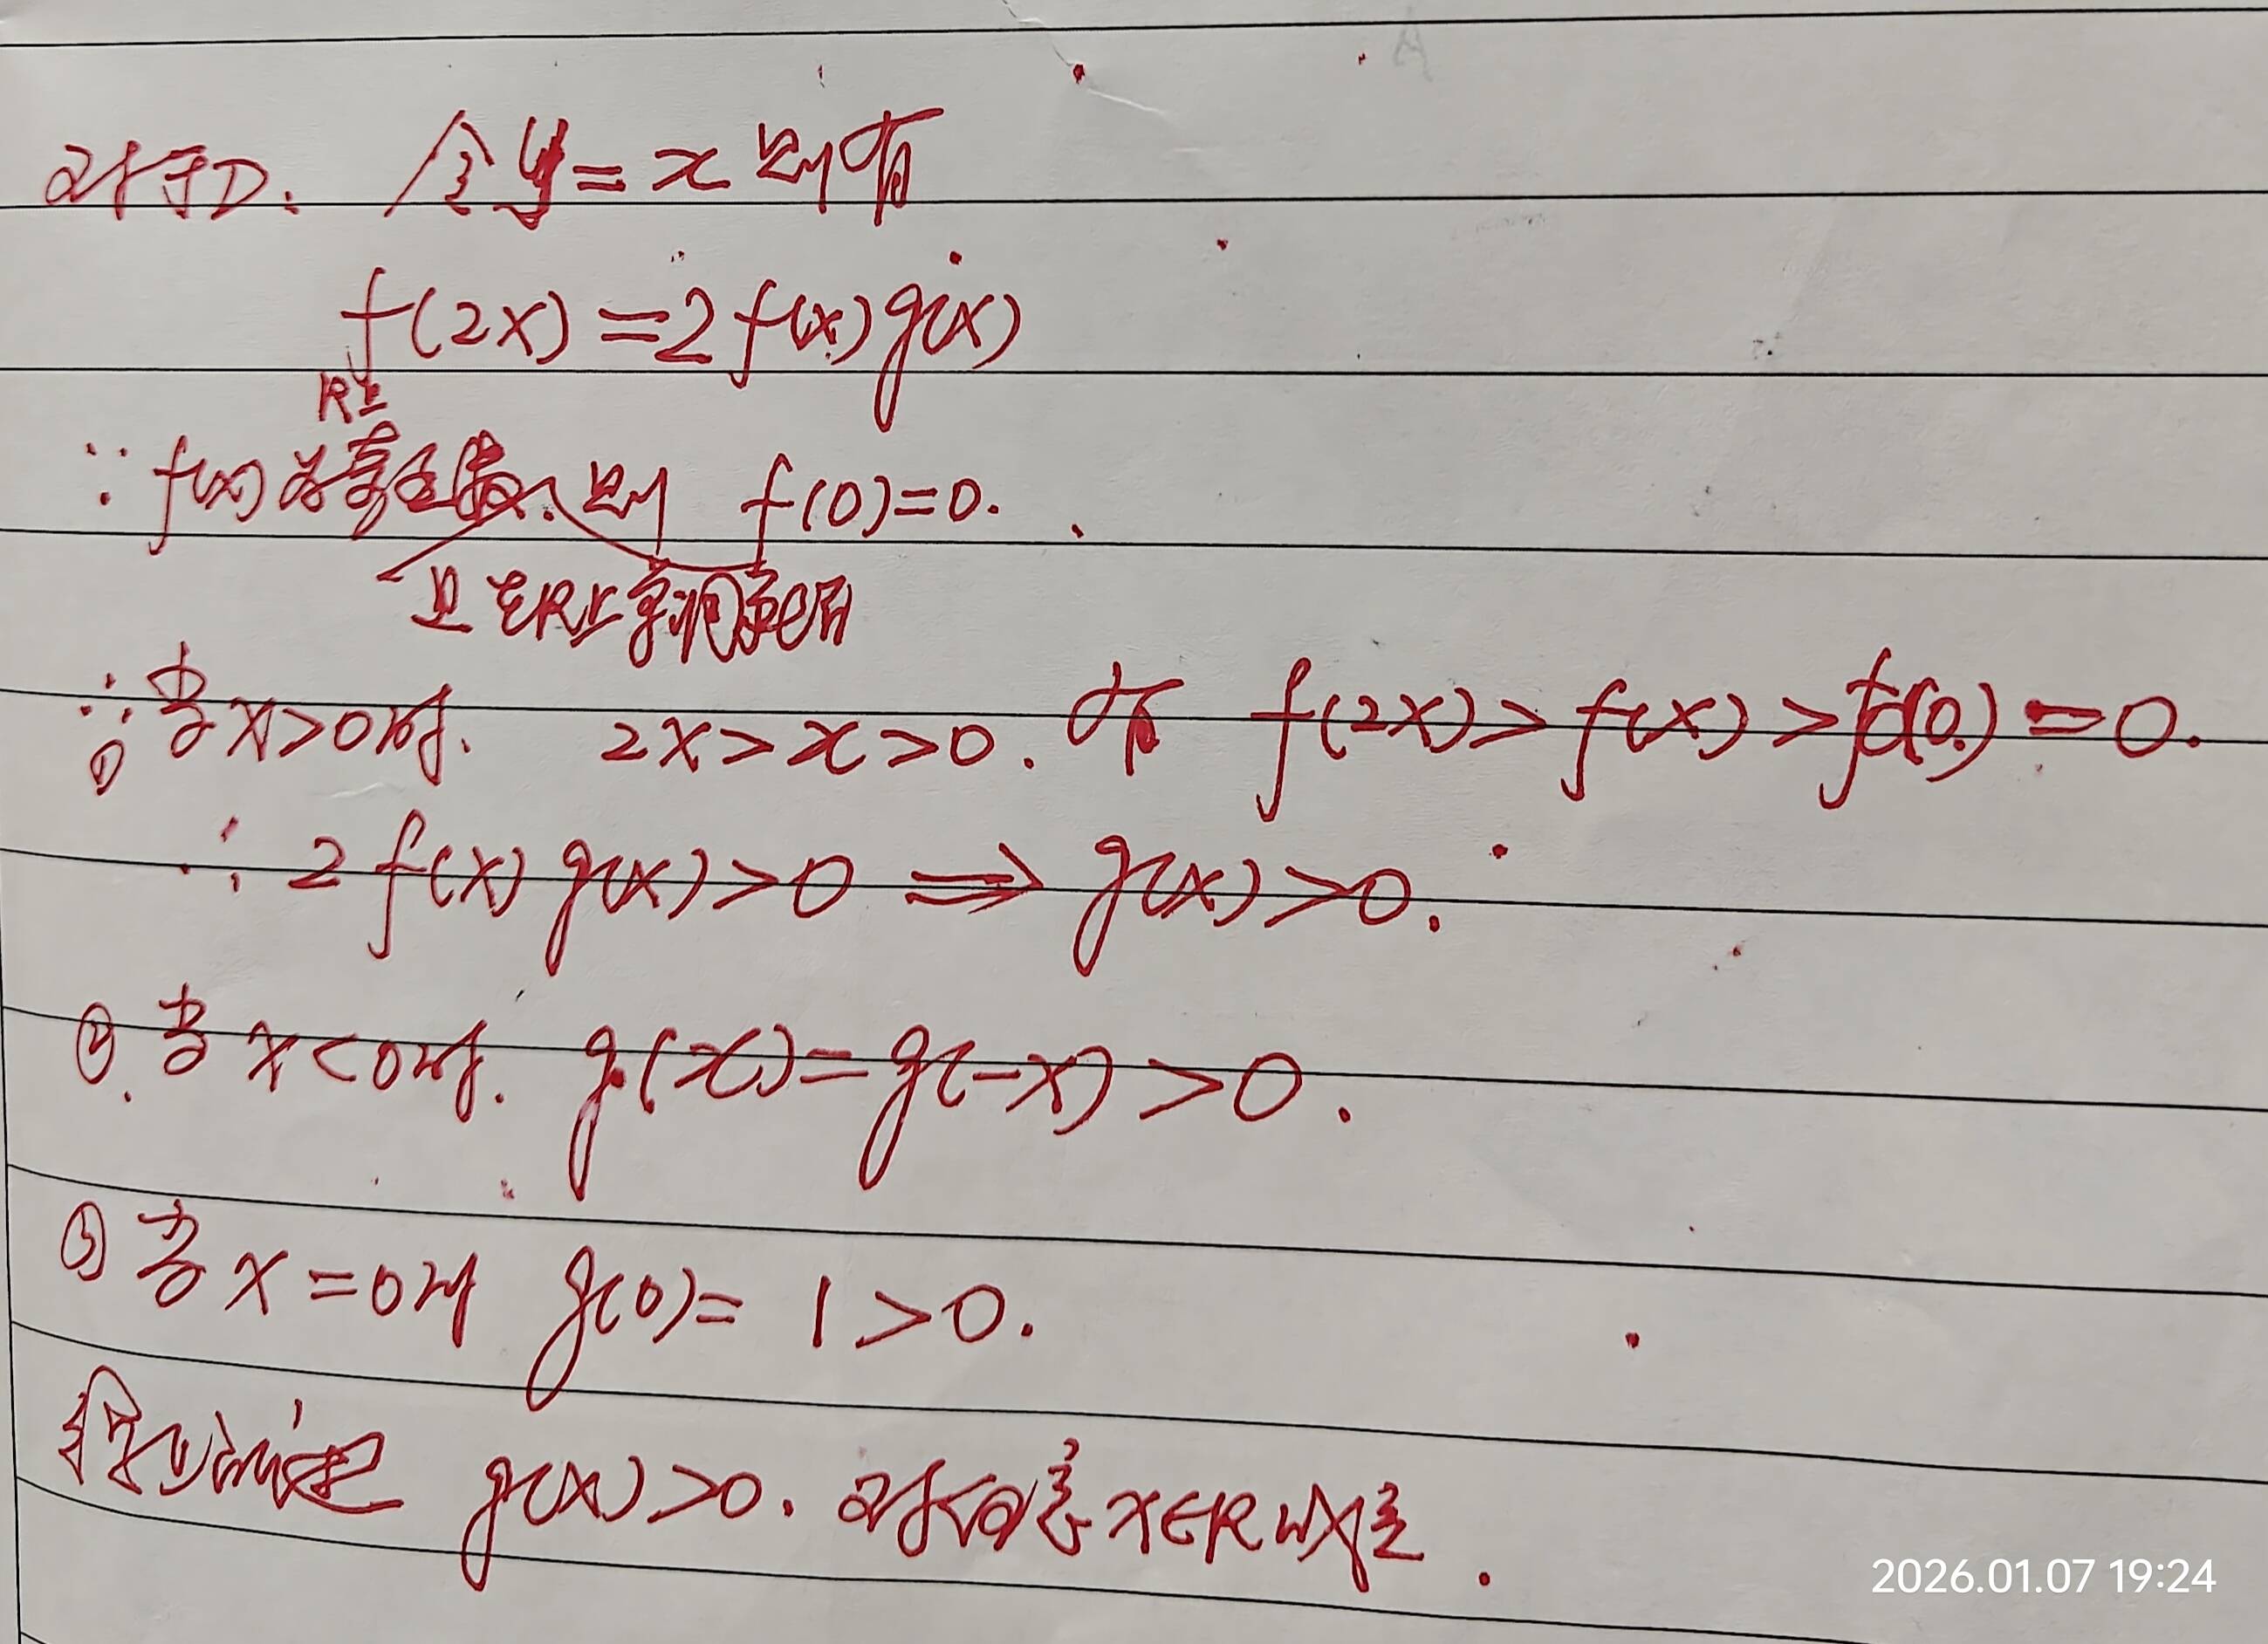 对于D. 令y=x 则有
f(2x)=2f(x)g(x)
R上
∵f(x)为奇函数. 则 f(0)=0.
且在R上单调递增
∴①当x>0时. 2x>x>0. 有 f(2x)>f(x)>f(0)=0.
∴ 2f(x)g(x)>0 ⟹ g(x)>0.
②. 当x<0时. g(x)=g(-x)>0.
③当x=0时 g(0)=1>0.
g(x)>0. 对任意x∈R 成立.
2026.01.07 19:24